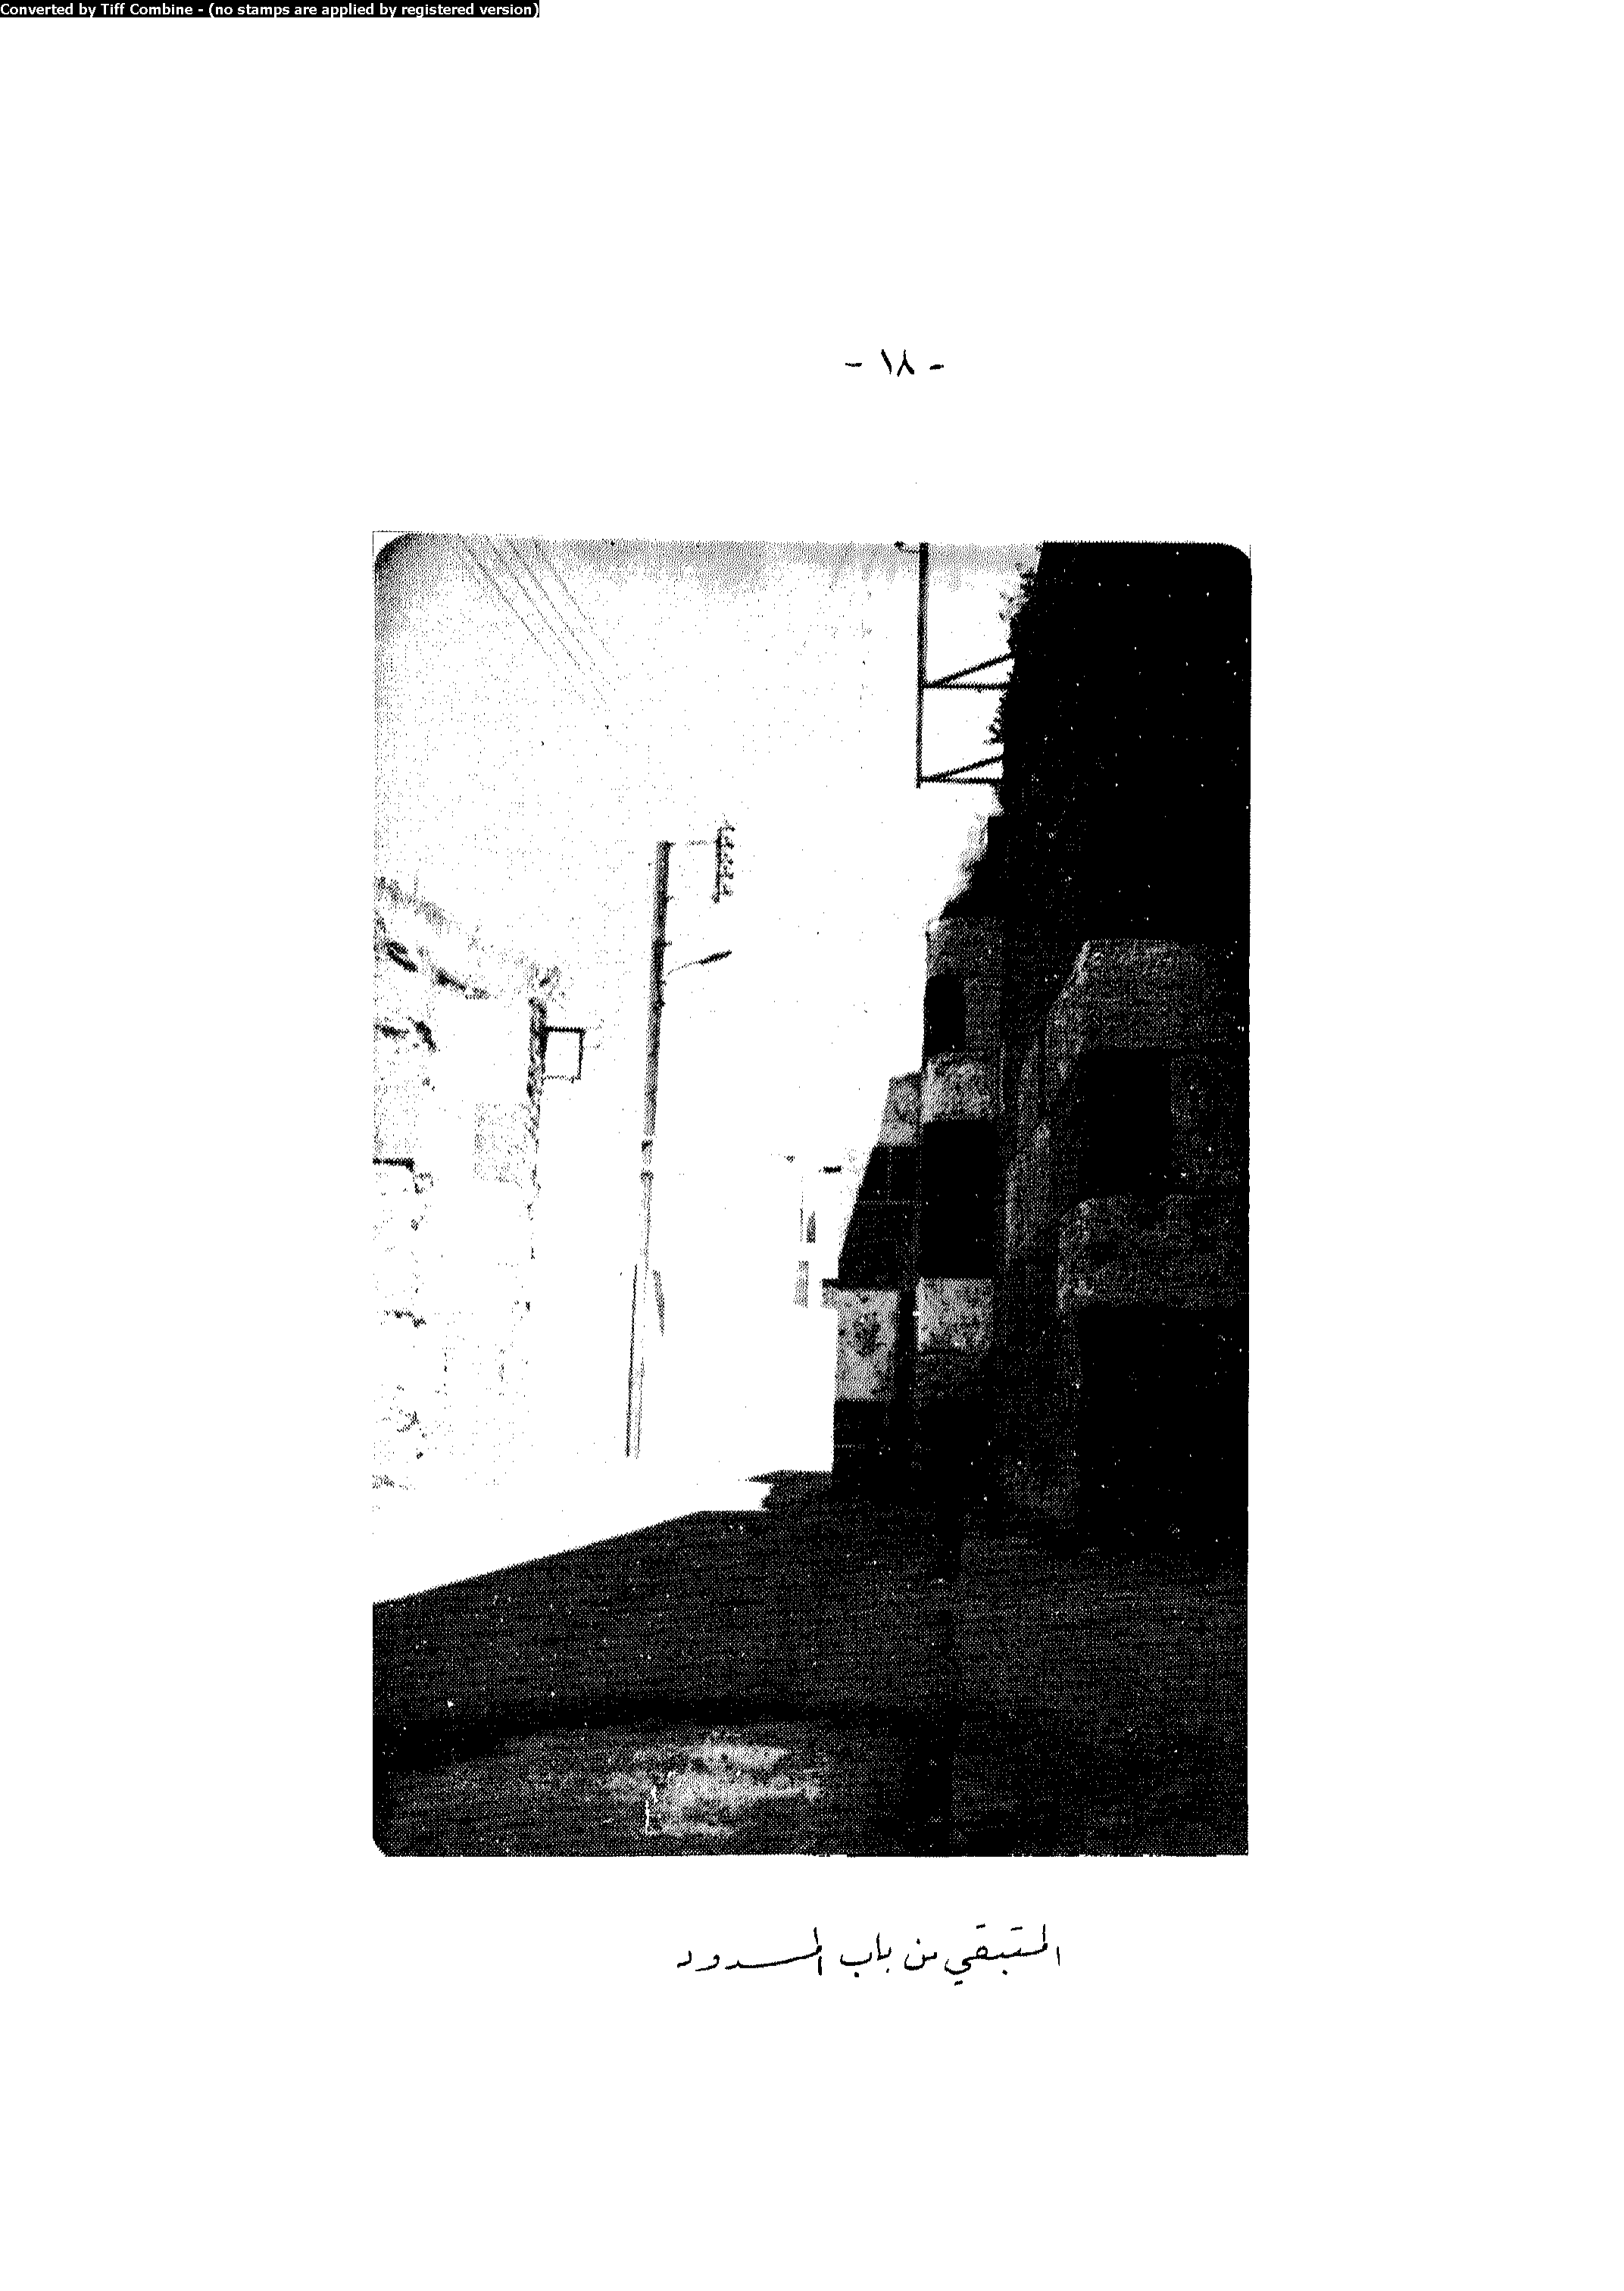 Converted by Tiff Combine - (no stamps are applied by registered version)
- ١٨ -
المتبقي من باب المسدود